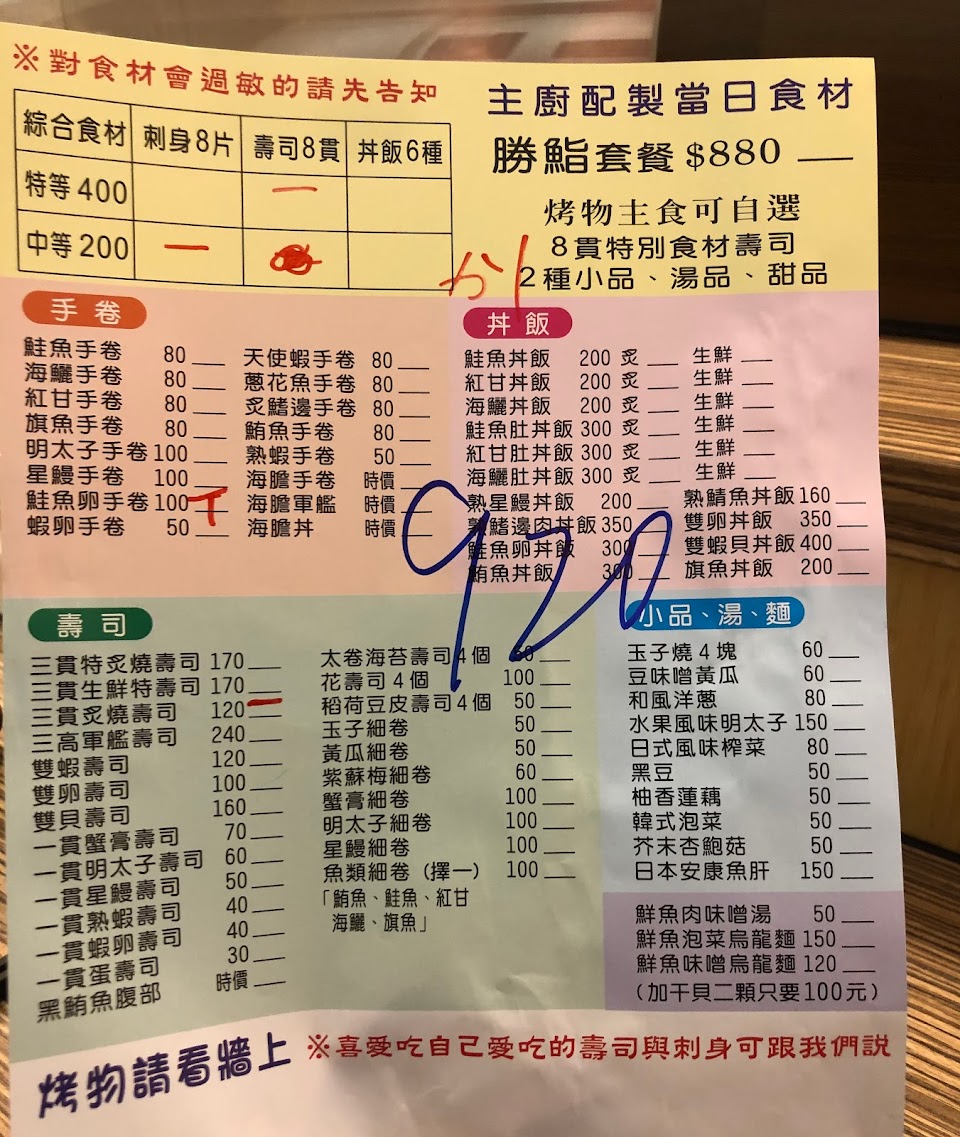 ※對食材會過敏的請先告知
綜合食材 刺身8片 壽司8貫 丼飯6種
特等400 一
中等200 一
主廚配製當日食材
勝鮨套餐 $880 ___
烤物主食可自選
8貫特別食材壽司
2種小品、湯品、甜品
手卷
鮭魚手卷 80 ___
海鱺手卷 80 ___
紅甘手卷 80 ___
旗魚手卷 80 ___
明太子手卷 100 ___
星鰻手卷 100 ___
鮭魚卵手卷 100 ___
蝦卵手卷 50 ___
天使蝦手卷 80 ___
蔥花魚手卷 80 ___
炙鰭邊手卷 80 ___
鮪魚手卷 80 ___
熟蝦手卷 50 ___
海膽手卷 時價 ___
海膽軍艦 時價 ___
海膽丼 時價 ___
丼飯
鮭魚丼飯 200 炙 ___ 生鮮 ___
紅甘丼飯 200 炙 ___ 生鮮 ___
海鱺丼飯 200 炙 ___ 生鮮 ___
鮭魚肚丼飯 300 炙 ___ 生鮮 ___
紅甘肚丼飯 300 炙 ___ 生鮮 ___
海鱺肚丼飯 300 炙 ___ 生鮮 ___
熟星鰻丼飯 200 ___
熟鰭邊肉丼飯 350 ___
鮭魚卵丼飯 300 ___
鮪魚丼飯 300 ___
熟鯖魚丼飯 160 ___
雙卵丼飯 350 ___
雙蝦貝丼飯 400 ___
旗魚丼飯 200 ___
920
壽司
三貫特炙燒壽司 170 ___
三貫生鮮特壽司 170 ___
三貫炙燒壽司 120 一
三高軍艦壽司 240 ___
雙蝦壽司 120 ___
雙卵壽司 100 ___
雙貝壽司 160 ___
一貫蟹膏壽司 70 ___
一貫明太子壽司 60 ___
一貫星鰻壽司 50 ___
一貫熟蝦壽司 40 ___
一貫蝦卵壽司 40 ___
一貫蛋壽司 30 ___
黑鮪魚腹部 時價 ___
太卷海苔壽司4個 60 ___
花壽司4個 100 ___
稻荷豆皮壽司4個 50 ___
玉子細卷 50 ___
黃瓜細卷 50 ___
紫蘇梅細卷 60 ___
蟹膏細卷 100 ___
明太子細卷 100 ___
星鰻細卷 100 ___
魚類細卷(擇一) 100 ___
「鮪魚、鮭魚、紅甘
海鱺、旗魚」
小品、湯、麵
玉子燒4塊 60 ___
豆味噌黃瓜 60 ___
和風洋蔥 80 ___
水果風味明太子 150 ___
日式風味榨菜 80 ___
黑豆 50 ___
柚香蓮藕 50 ___
韓式泡菜 50 ___
芥末杏鮑菇 50 ___
日本安康魚肝 150 ___
鮮魚肉味噌湯 50 ___
鮮魚泡菜烏龍麵 150 ___
鮮魚味噌烏龍麵 120 ___
(加干貝二顆只要100元)
烤物請看牆上
※喜愛吃自己愛吃的壽司與刺身可跟我們説